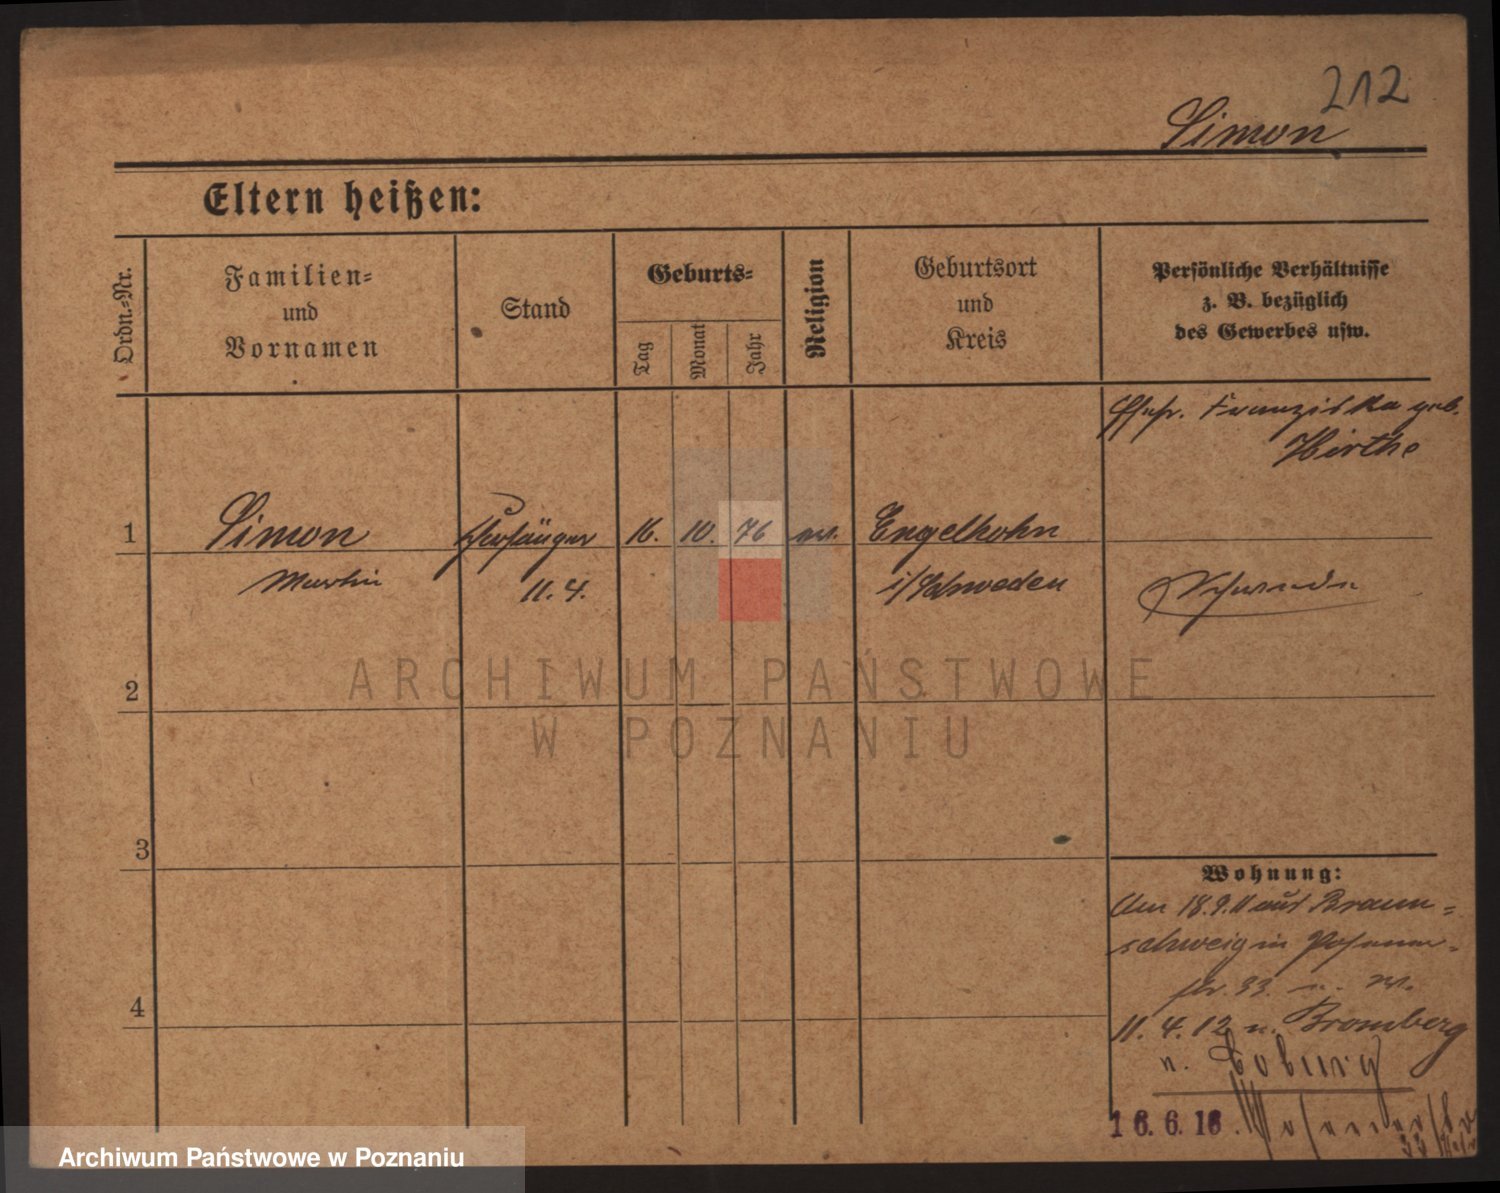 212
Simon
Eltern heißen:
Ordn.-Nr.
Familien-
und
Vornamen
Stand
Geburts-
Tag
Monat
Jahr
Religion
Geburtsort
und
Kreis
Persönliche Verhältnisse
z. B. bezüglich
des Gewerbes usw.
Franziska geb.
Hirthe
1
Simon
16.
10.
76
ev.
Engelhohn
Martin
11. 4.
i/Schweden
2
3
4
Wohnung:
Am 18.9.11 aus Braun-
schweig in Posener-
str. 33.
11. 4. 12 n. Bromberg
n. Coburg
16. 6. 16.
ARCHIWUM PAŃSTWOWE
W POZNANIU
Archiwum Państwowe w Poznaniu